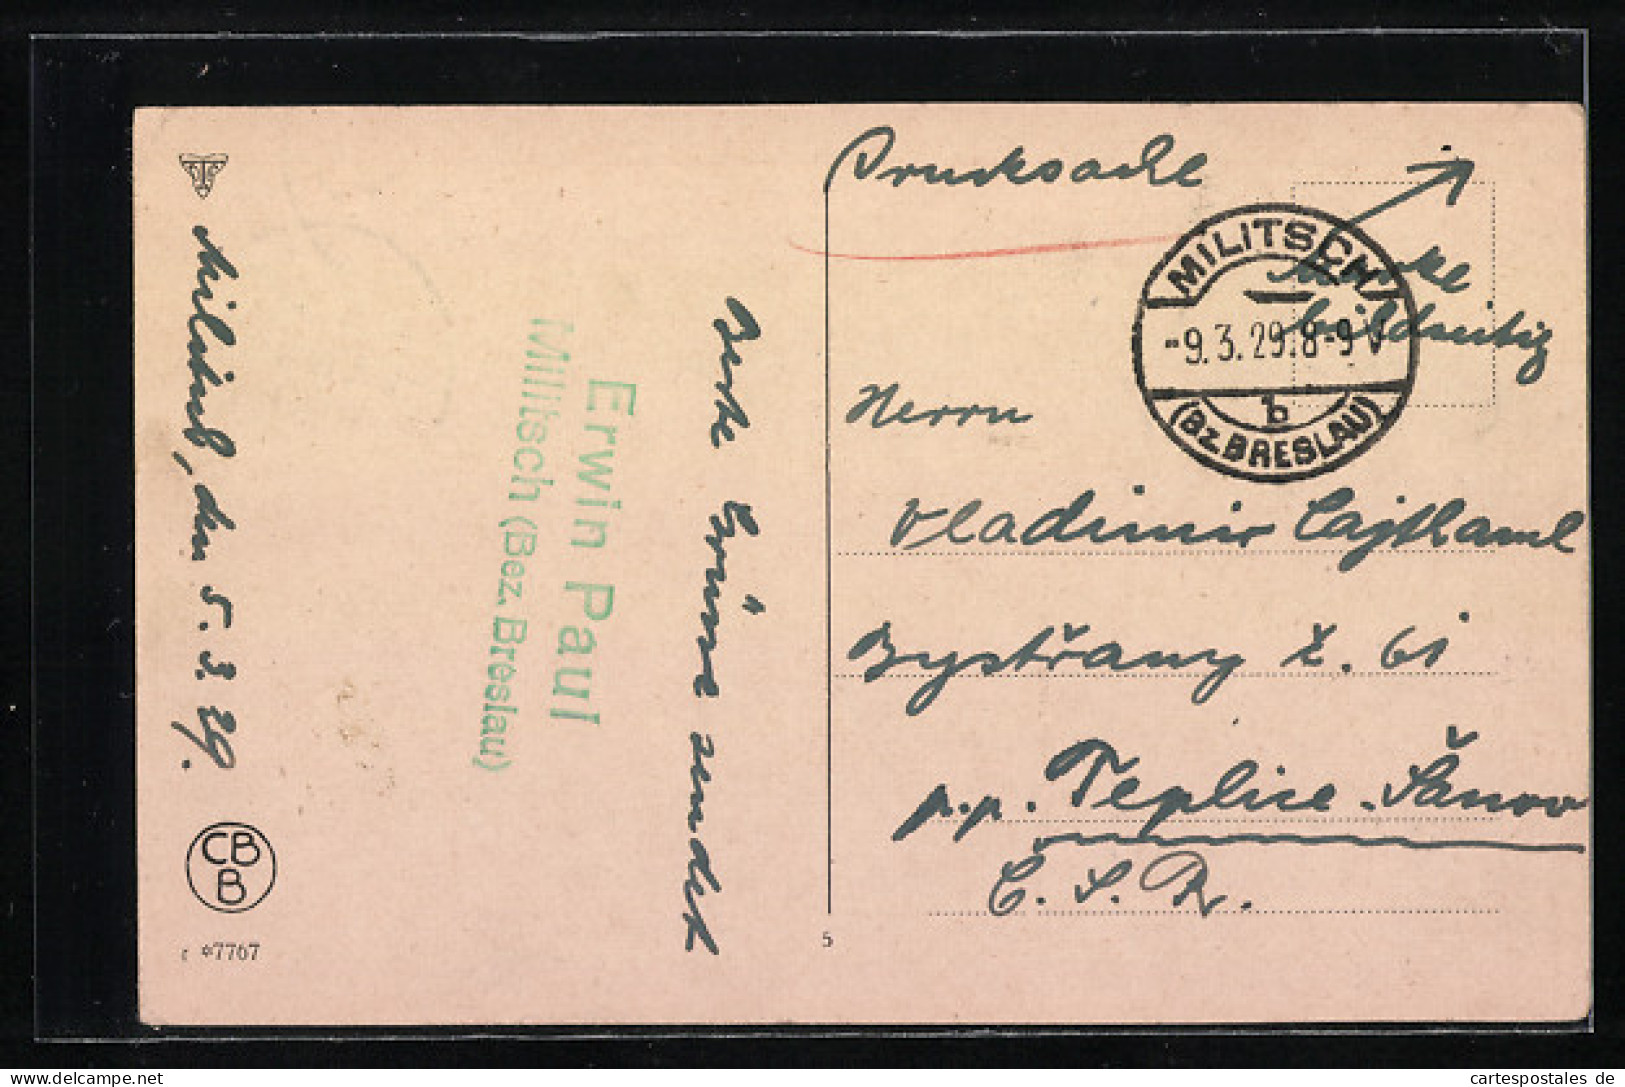 Militsch, den 5. 3. 29.
CB
B
*7767
Erwin Paul
Militsch (Bez. Breslau)
Beste Grüsse sendet
5
Drucksache
Marke
bildseitig
MILITSCH
-9.3.29.8-9 V
b
(Bz. BRESLAU)
Herrn
Vladimir Cajthaml
Bystřany č. 61
p.p. Teplice-Šanov
Č. S. R.
cartespostales de